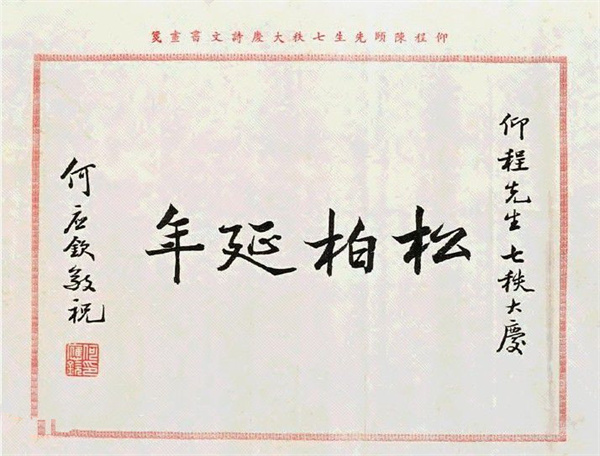 仰程陳頤先生七秩大慶詩文書畫箋
仰程先生七秩大慶
松柏延年
何应欽敬祝
何印應欽